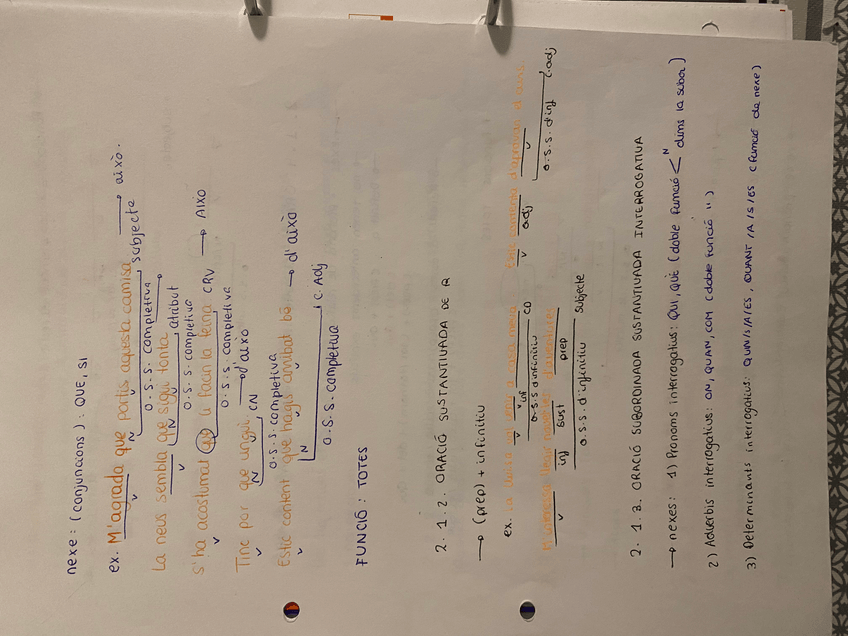 nexe: (conjuncions): QUE, SI
ex. M'agrada que portis aquesta camisa → això.
N O.S.S. completiva subjecte
La neus sembla que sigui tonta
V N O.S.S. completiva atribut
S'ha acostumat que li facin la feina CRV → AIXÒ
V O.S.S. completiva
Tinc por que vingui CN → d'això
V N O.S.S. completiva
Estic content que hagis arribat bé → d'això
V N O.S.S. completiva C. Adj
FUNCIÓ: TOTES
2.1.2. ORACIÓ SUSTANTIVADA DE
→ (prep) + infinitiu
ex.
V inf O.S.S d'infinitiu CD
V adj V O.S.S. d'inf C.adj
V inf sust prep
O.S.S. d'infinitiu subjecte
2.1.3. ORACIÓ SUBORDINADA SUSTANTIVADA INTERROGATIVA
→ nexes: 1) Pronoms interrogatius: QUI, QUÈ (doble funció < N dins la subor)
2) Adverbis interrogatius: ON, QUAN, COM (doble funció ")
3) Determinants interrogatius: QUIN/S/A/ES, QUANT/A/S/ES (funció de nexe)